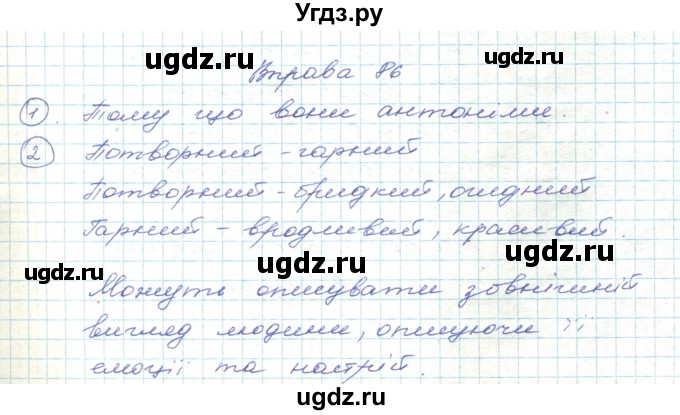 Угдз.ру
Вправа 86
1. Тому що вони антоніми.
2 Потворний - гарний
Потворний - бридкий, огидний
Гарний - вродливий, красивий.
Можуть описувати зовнішній
вигляд людини, описуючи її
емоції та настрій.
ugdz.ru ugdz.ru ugdz.ru
ugdz.ru ugdz.ru
ugdz.ru ugdz.ru ugdz.ru
ugdz.ru
ugdz.ru
ugdz.ru